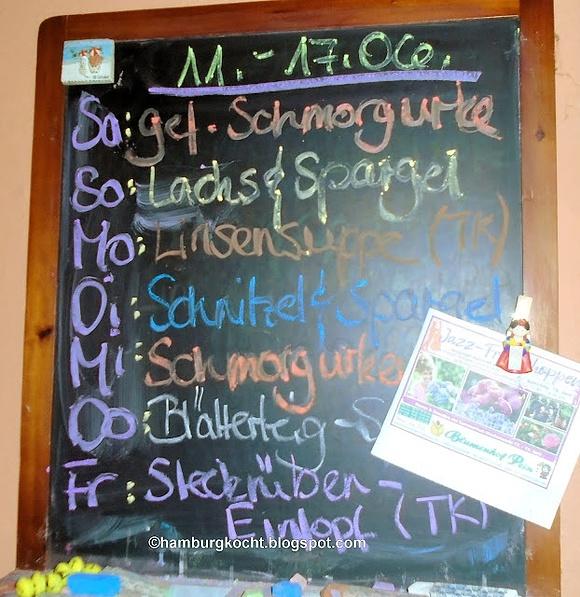 11.-17.Okt.
Sa: gef. Schmorgurke
So: Lachs & Spargel
Mo: Linsensuppe (TK)
Di: Schnitzel & Spargel
Mi: Schmorgurke
Do: Blätterteig-S
Fr: Steckrüben-
Eintopf (TK)
Jazz-Fr hoppen
Blumenhof Pein
©hamburgkocht.blogspot.com